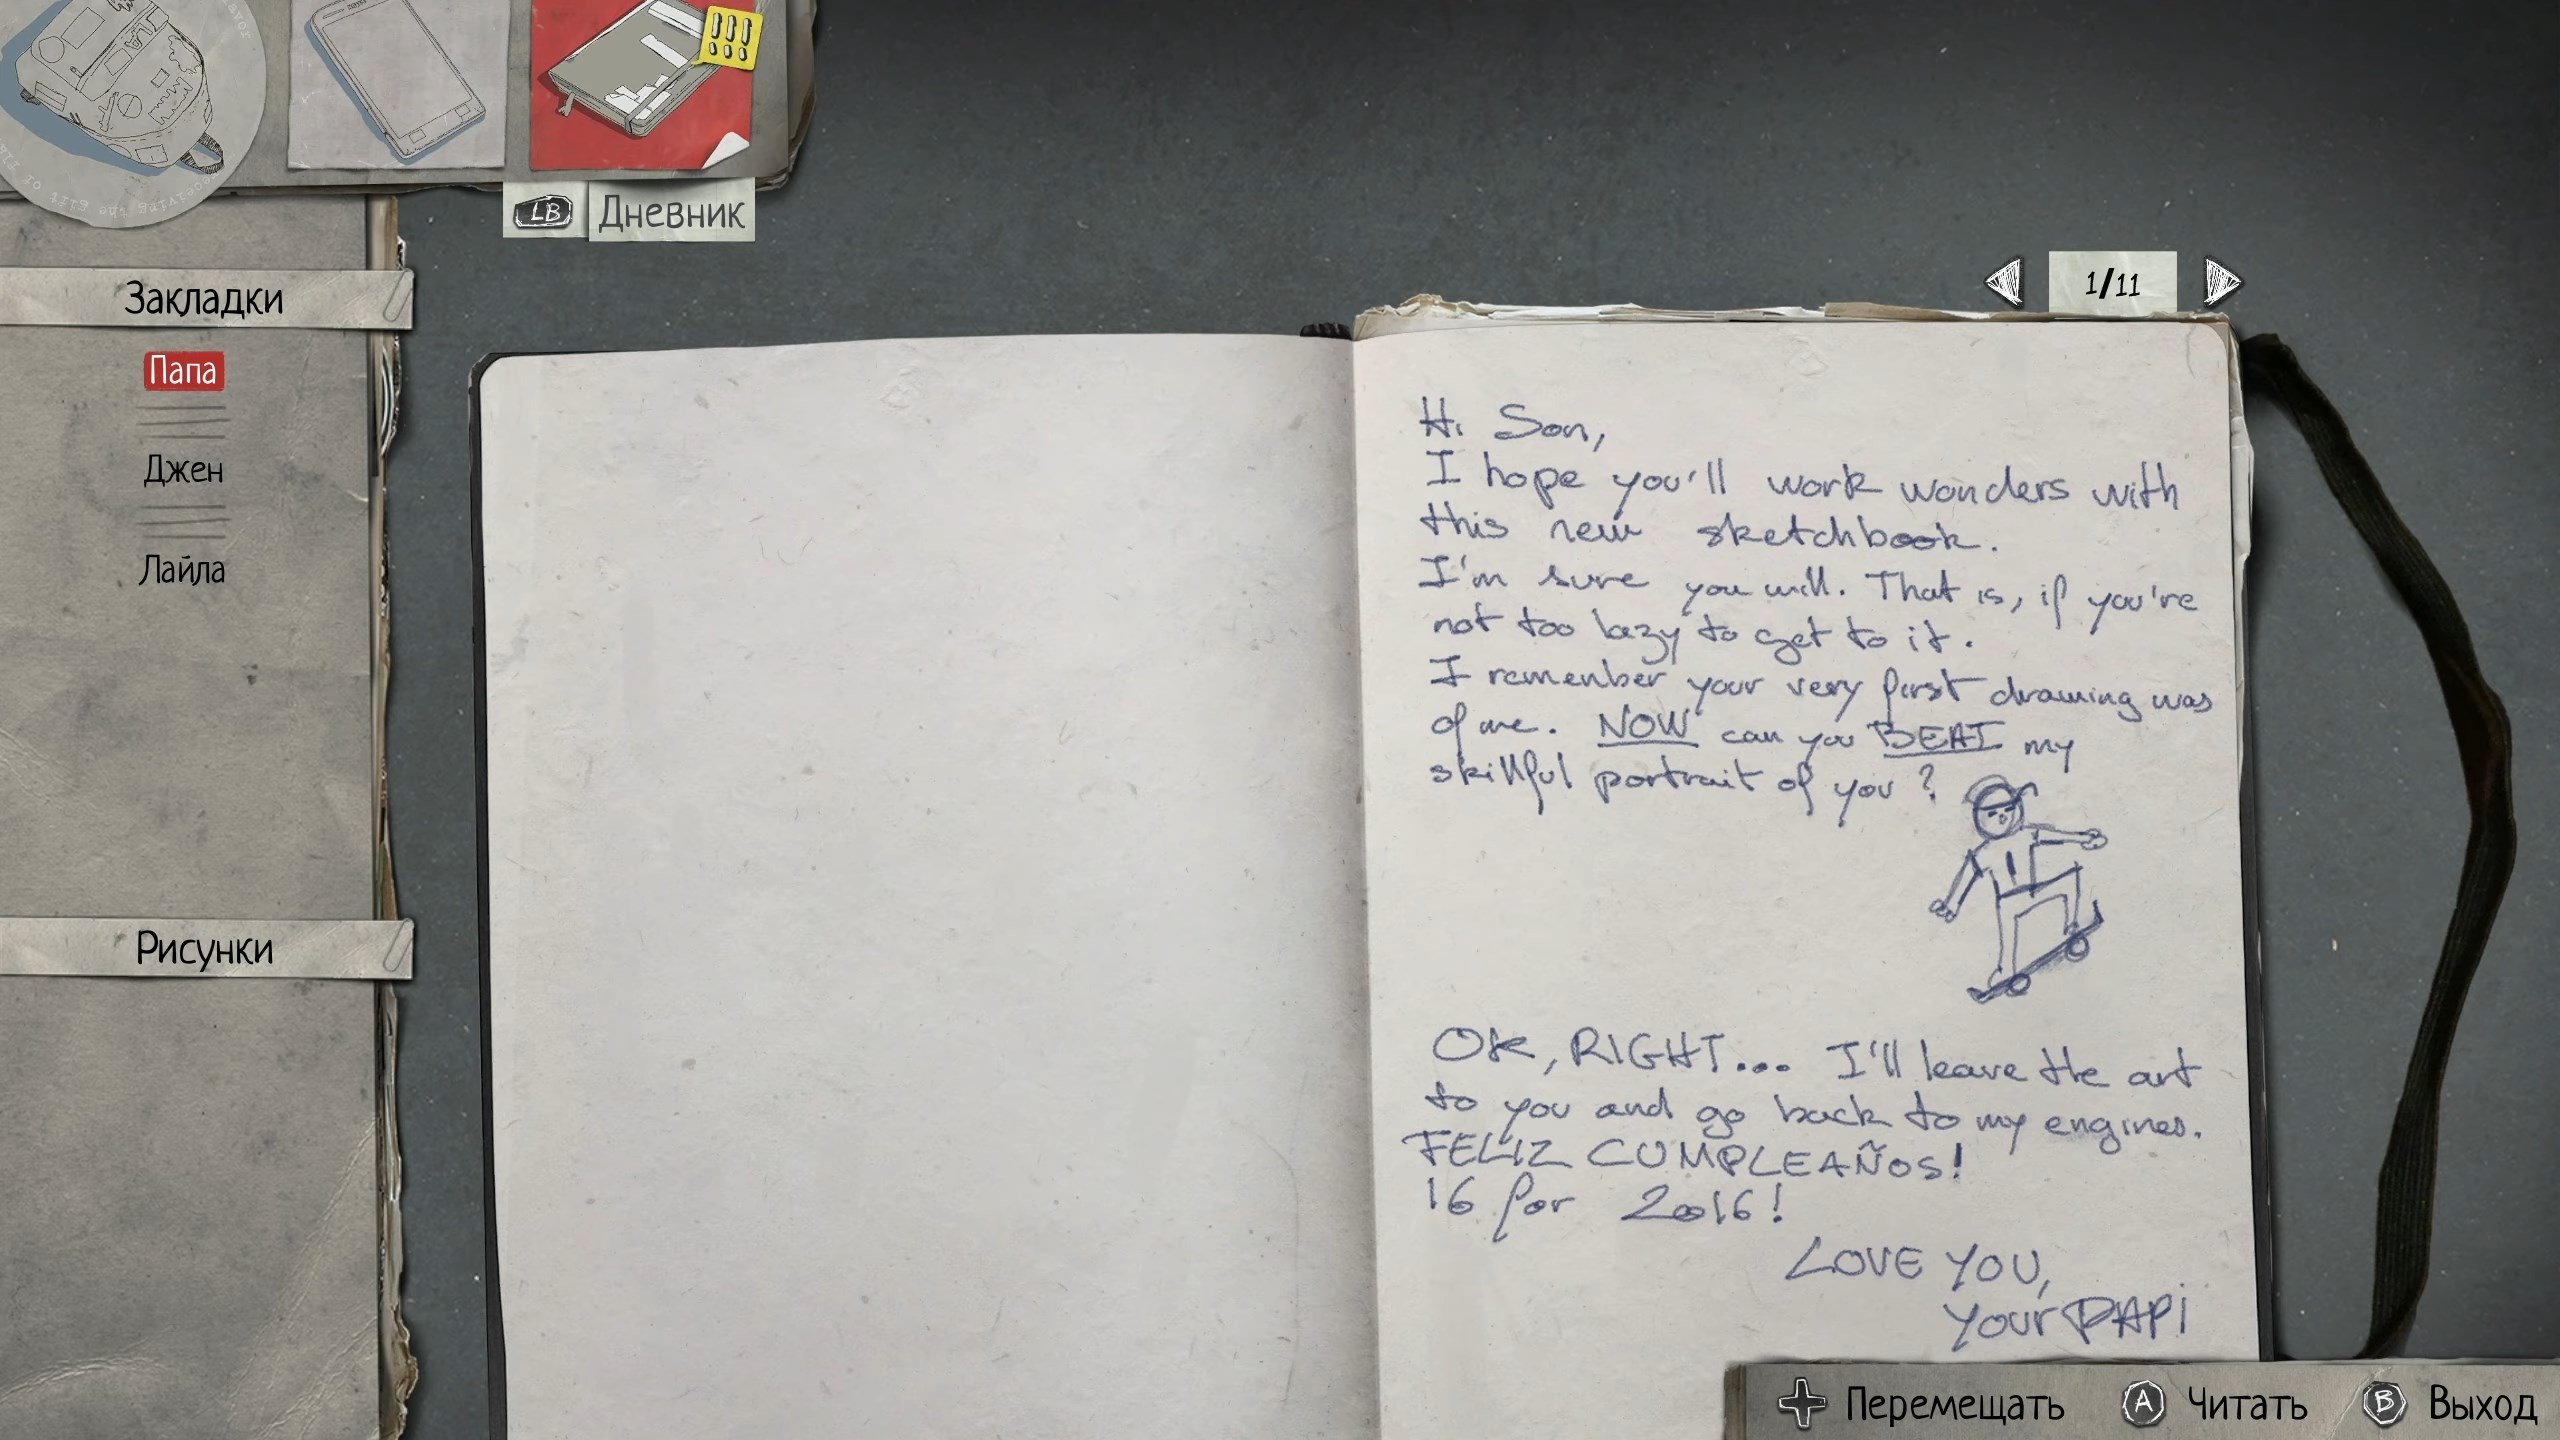 LB Дневник
Закладки
Папа
Джен
Лайла
Рисунки
1/11
Hi Son,
I hope you'll work wonders with
this new sketchbook.
I'm sure you will. That is, if you're
not too lazy to get to it.
I remember your very first drawing was
of me. NOW can you BEAT my
skillful portrait of you?
OK, RIGHT... I'll leave the art
to you and go back to my engines.
FELIZ CUMPLEAÑOS!
16 for 2016!
LOVE YOU,
Your PAPI
Перемещать
A Читать
B Выход